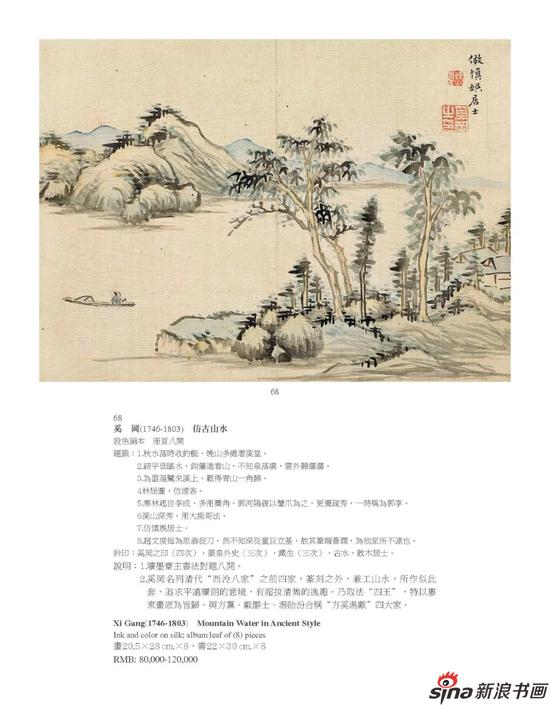 倣慎娛居士
68
68
奚 岡(1746-1803) 仿古山水
設色絹本 冊頁八開
題識：1.秋水落時收釣艇，晚山多處著溪堂。
2.結宇低臨水，鉤簾遠看山，不知泉落處，雲外聽潺潺。
3.為圖溫鷺來溪上，載得青山一角歸。
4.林居圖，仿煙客。
5.寒林起自李成，多用麋角，郭河陽復以蟹爪為之，更覺疏秀，一時稱為郭李。
6.溪山深秀，用大癡哥法。
7.仿慎娛居士。
8.趙文度每為思翁捉刀，然不知深從董巨立基，故其筆端蒼潤，為他家所不逮也。
鈐印：奚岡之印（四次），蒙泉外史（三次），鐵生（三次），古水，散木居士。
說明：1.曚墨齋主書法對題八開。
2.奚岡名列清代“西泠八家”之前四家，篆刻之外，兼工山水，所作似此
套，追求平遠曚朗的意境，有超拔清雋的逸趣。乃取法“四王”，特以婁
東畫派為旨歸。與方薰、戴醇士、湯貽汾合稱“方奚湯戴”四大家。
Xi Gang(1746-1803) Mountain Water in Ancient Style
Ink and color on silk; album leaf of (8) pieces
畫20.5×28 cm.×8，書22×30 cm.×8
RMB: 80,000-120,000
sina新浪书画